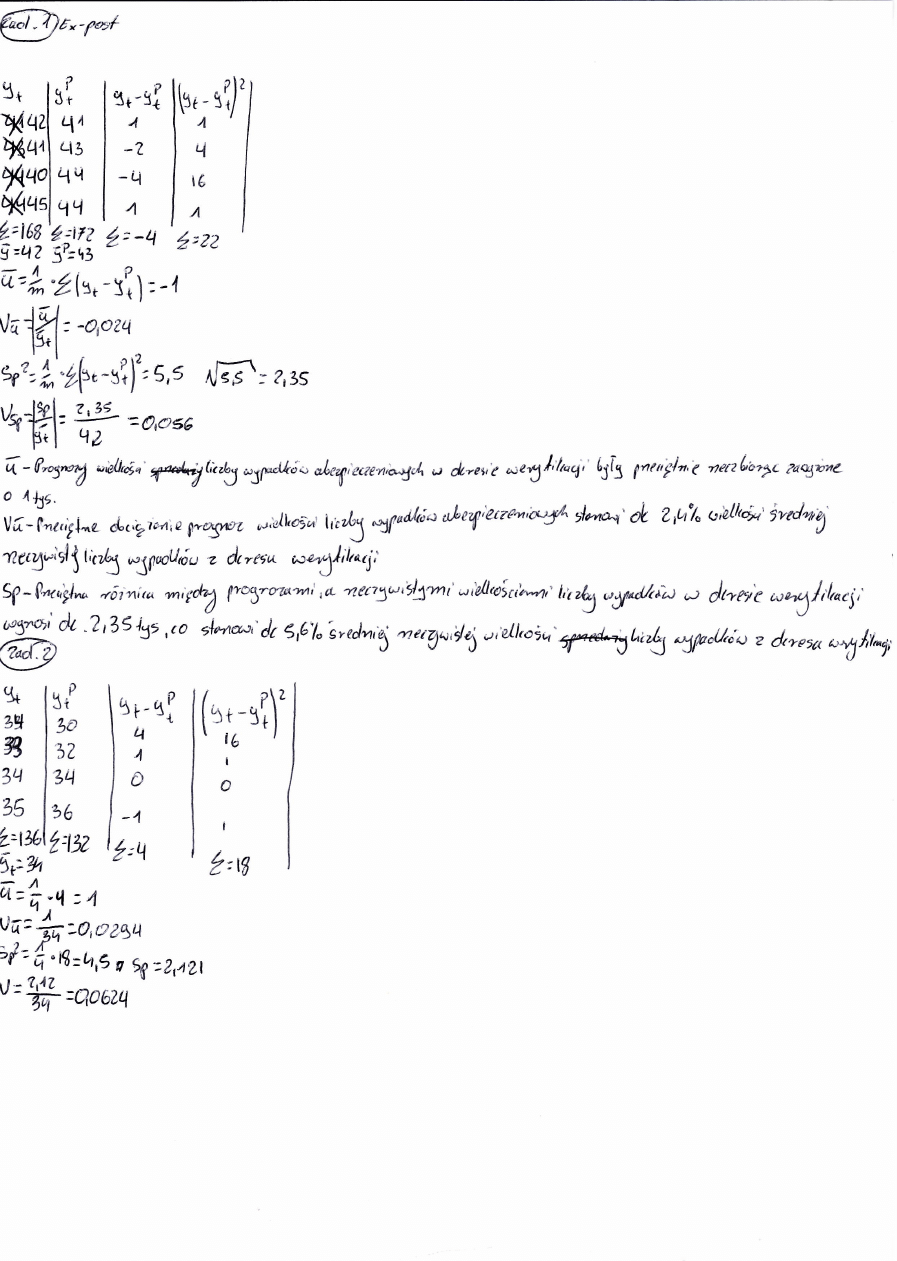 Zad. 1 Ex-post
yt | ytᴾ | yt-ytᴾ | (yt-ytᴾ)²
42 | 41 | 1 | 1
41 | 43 | -2 | 4
40 | 44 | -4 | 16
45 | 44 | 1 | 1
Σ=168 Σ=172 Σ=-4 Σ=22
ȳ=42 ȳᴾ=43
ū=1/m·Σ(yt-ytᴾ)=-1
Vū=|ū/ȳt|=-0,024
Sp²=1/m·Σ(yt-ytᴾ)²=5,5 √5,5=2,35
Vsp=|Sp/ȳt|=2,35/42=0,056
ū - Prognozy wielkości sprzedaży liczby wypadków ubezpieczeniowych w okresie weryfikacji były przeciętnie rzecz biorąc zawyżone
o 1 tys.
Vū - Przeciętne obciążenie prognoz wielkości liczby wypadków ubezpieczeniowych stanowi ok 2,4% wielkości średniej
rzeczywistej liczby wypadków z okresu weryfikacji
Sp - Przeciętna różnica między prognozami, a rzeczywistymi wielkościami liczby wypadków w okresie weryfikacji
wynosi ok. 2,35 tys, co stanowi ok 5,6% średniej rzeczywistej wielkości sprzedaży liczby wypadków z okresu weryfikacji
Zad. 2
yt | ytᴾ | yt-ytᴾ | (yt-ytᴾ)²
34 | 30 | 4 | 16
33 | 32 | 1 | 1
34 | 34 | 0 | 0
35 | 36 | -1 | 1
Σ=136 Σ=132 Σ=4 Σ=18
ȳt=34
ū=1/4·4=1
Vū=1/34=0,0294
Sp²=1/4·18=4,5 Sp=2,121
V=2,12/34=0,0624